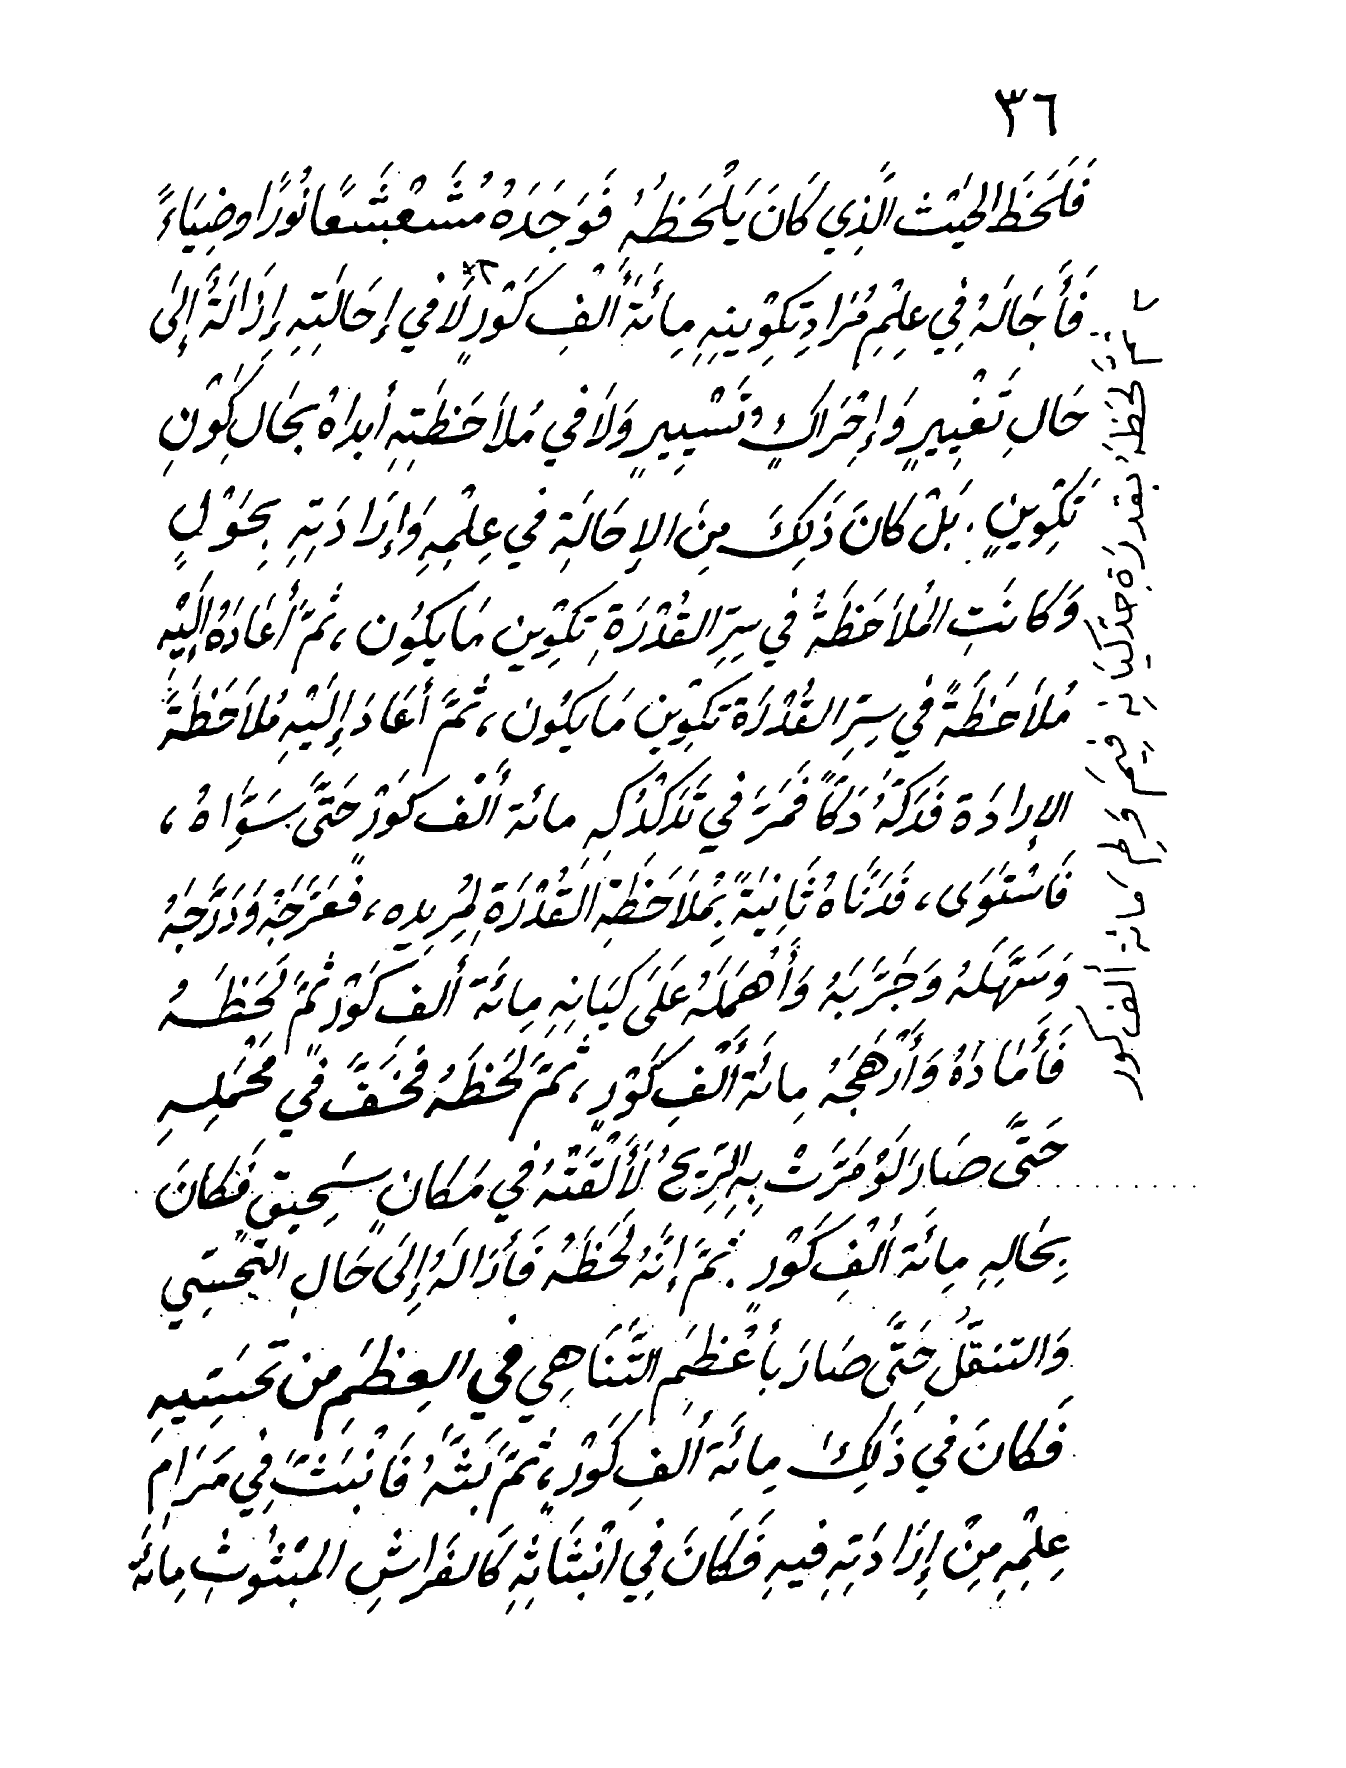 ٣٦
فَلَحَظَ الحَيْث الَّذِي كَانَ يَلْحَظُهُ فَوَجَدَهُ مُشَعْشَعًا نُورًا وضِيَاءً
فَأَجَالَهُ فِي عِلْمِ مُرَادِ تِكْوِينِهِ مِائَةَ أَلْفِ كَوْرٍ لَا في إحَالَتِهِ إِزَالَةً إِلَى
حَالِ تَغْيِيرٍ وَإِحْرَاكٍ وتَسْيِيرٍ وَلَا في مُلَاحَظَتِهِ أبداهُ بحَالِ كَوْنِ
تَكْوِينٍ . بَلْ كَانَ ذَلِكَ مِنَ الإحَالَةِ في عِلْمِهِ وَإرَادَتِهِ بِحَوْلٍ
وَكَانَتِ المُلَاحَظَةُ في سِرِّ القُدْرَةِ تِكْوِين مَا يكُون ، ثُمَّ أعَادَهُ إلَيْهِ
مُلَاحَظَةً في سِرِّ القُدْرَة تكْوِين مَا يكُون ، ثُمَّ أعَادَ إِلَيْهِ مُلَاحَظَةَ
الإرادَة فَدَكَّهُ دَكًّا فَمَرَّ في تَدَكْدُكِهِ مائة ألْف كَوْر حَتَّى سَوَّاهُ ،
فَاسْتَوَى ، فَدَنَّاهُ ثَانِيَةً بِمُلَاحَظَةِ القُدْرَةِ لِمُرِيدِهِ ، فَعَرَّجَهُ وَدَرَّجَهُ
وَسَهَّلَهُ وَجَرَّبَهُ وَأَهْمَلَهُ عَلَى كيَانِهِ مِائَةَ ألف كَوْرٍ ثُمَّ لَحَظَهُ
فَأَمَادَهُ وَأَرْهَجَهُ مِائَةَ ألْفِ كَوْرٍ ، ثُمَّ لَحَظَهُ فَخَفَّ في مَحْمَلِهِ
حَتَّى صَارَ لَوْ مَرَّتْ بِهِ الرِّيحُ لَأَلْقَتْهُ في مَكَانٍ سَحِيقٍ فَكَانَ
بِحَالِهِ مِائَةَ ألْفِ كَوْرٍ . ثُمَّ إنَّهُ لَحَظَهُ فَأَزَالَهُ إِلَى حَالِ التحْسِّي
وَالتنقُّلِ حَتَّى صَارَ بأَعْظَمِ التَّنَاهِي في العِظَمِ من تحَسِّيهِ
فَكَانَ في ذَلِكَ مائَةَ ألْفِ كَوْرٍ ، ثُمَّ بَثَّهُ فَانْبَثَّ فِي مَرَامِ
عِلْمِهِ مِنْ إرَادَتِهِ فِيهِ فَكَانَ فِي انْبِثَاثِهِ كَالفَرَاشِ المَبْثُوثِ مِائَةَ
ثُمَّ لَحَظَهُ بقدرة كيانه مائة ألف كور